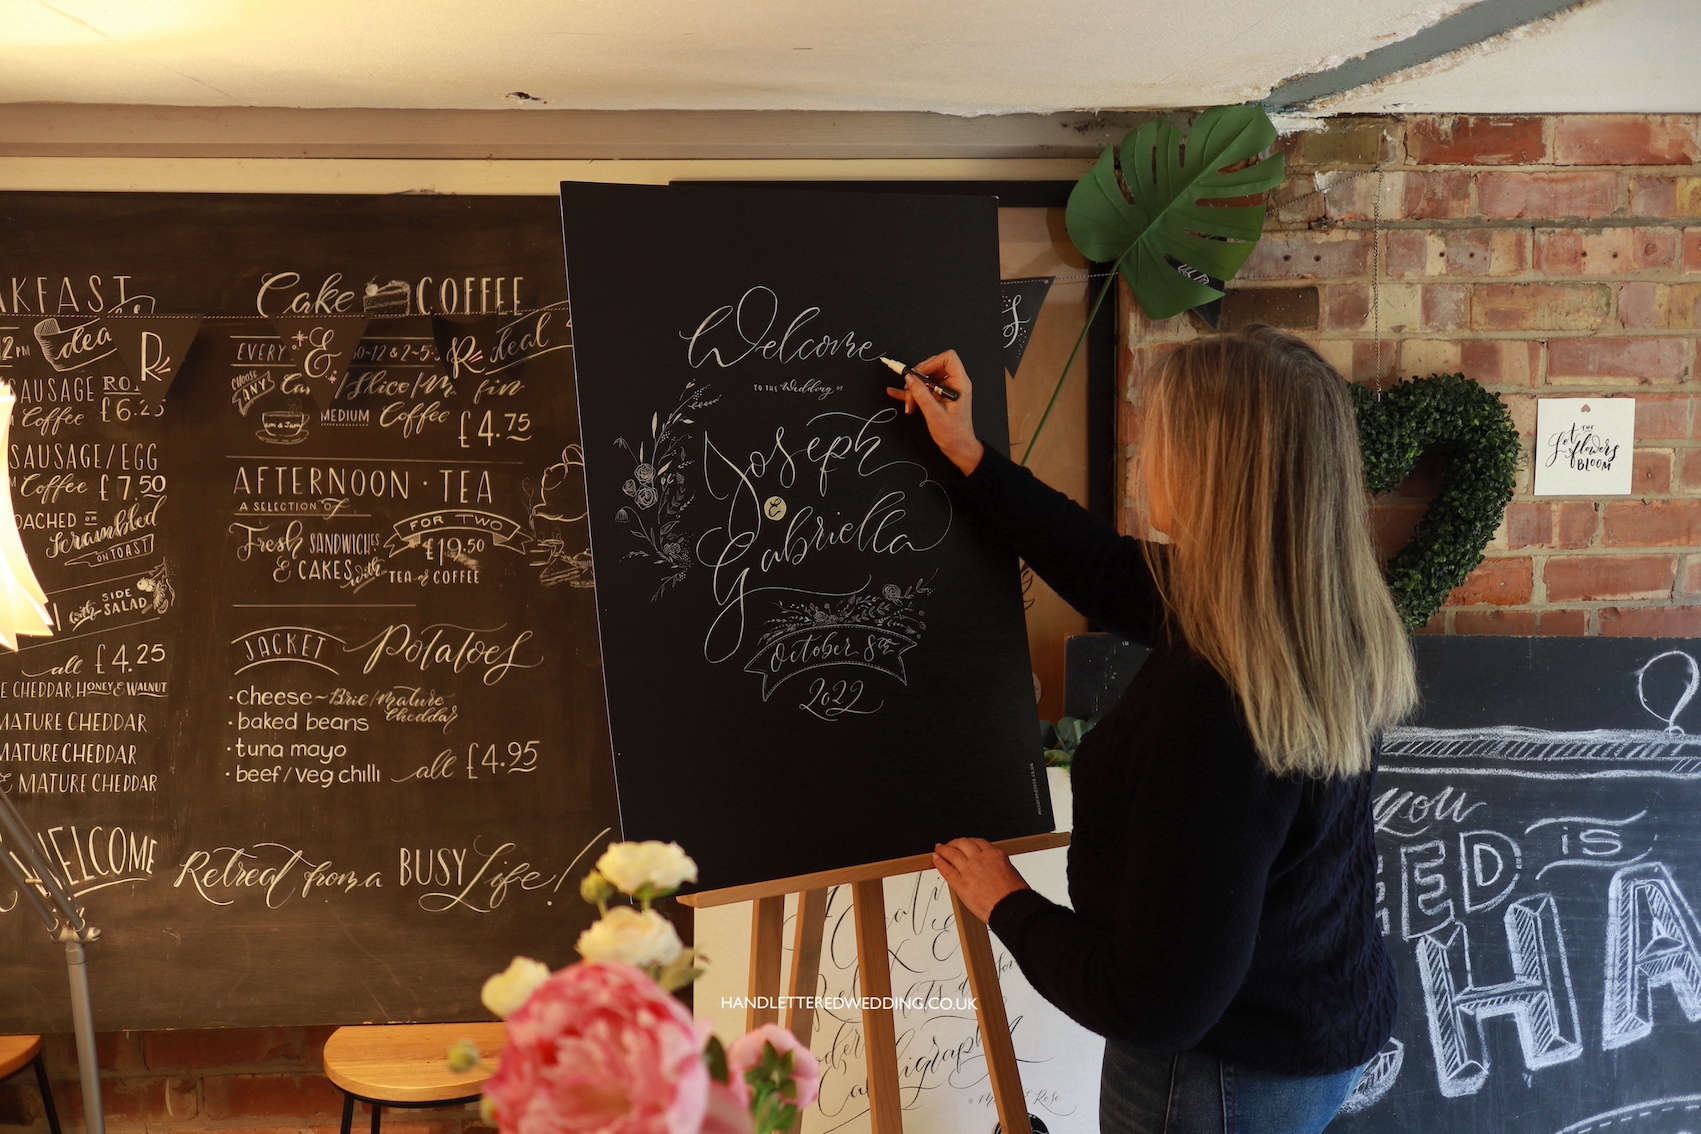 AKFAST
2PM
R
SAUSAGE RO
Coffee £6.25
SAUSAGE/EGG
Coffee £7.50
OACHED OR
Scrambled
ON TOAST
with SIDE SALAD
all £4.25
E CHEDDAR, HONEY & WALNUT
MATURE CHEDDAR
MATURE CHEDDAR
& MATURE CHEDDAR
WELCOME
Cake COFFEE
EVERY & 0-12 & 2~5 R
CHOOSE ANY
/Slice/
MEDIUM Coffee £4.75
AFTERNOON · TEA
A SELECTION of
Fresh SANDWICHES
& CAKES with
FOR TWO
£19.50
TEA or COFFEE
JACKET Potatoes
· cheese ~ Brie/Mature Cheddar
· baked beans
· tuna mayo
· beef/veg chilli
all £4.95
Retreat from a BUSY Life!
Welcome
TO THE Wedding OF
Joseph
&
Gabriella
October 8th
2022
Let THE
flowers
BLOOM
HANDLETTEREDWEDDING.CO.UK
you
EED IS
HA